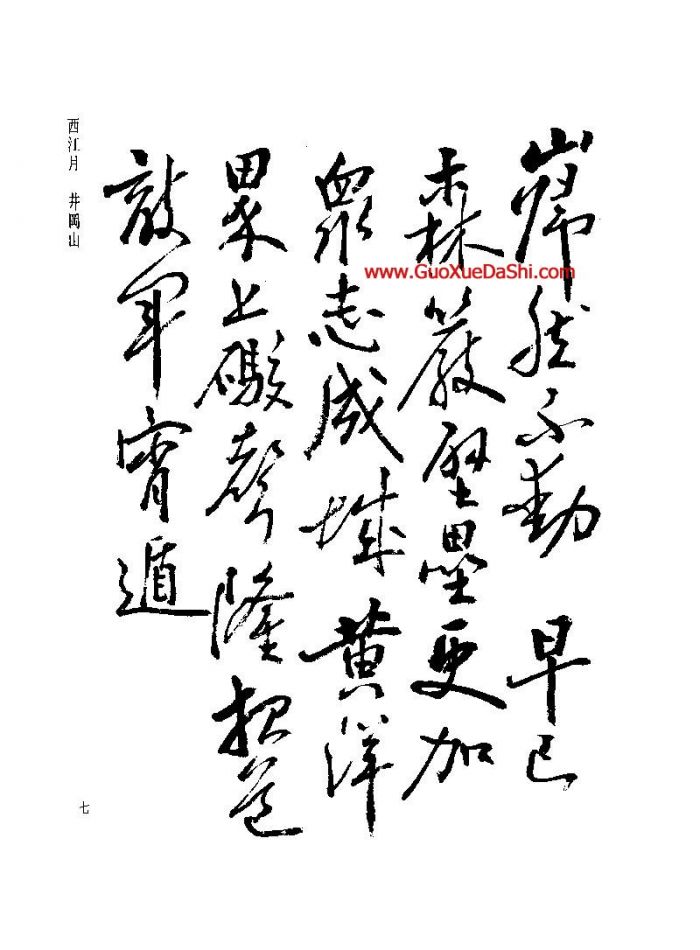 巋然不動 早已
森嚴壁壘更加
衆志成城黄洋
界上礮聲隆報道
敵軍宵遁
西江月 井岡山
七
www.GuoXueDaShi.com